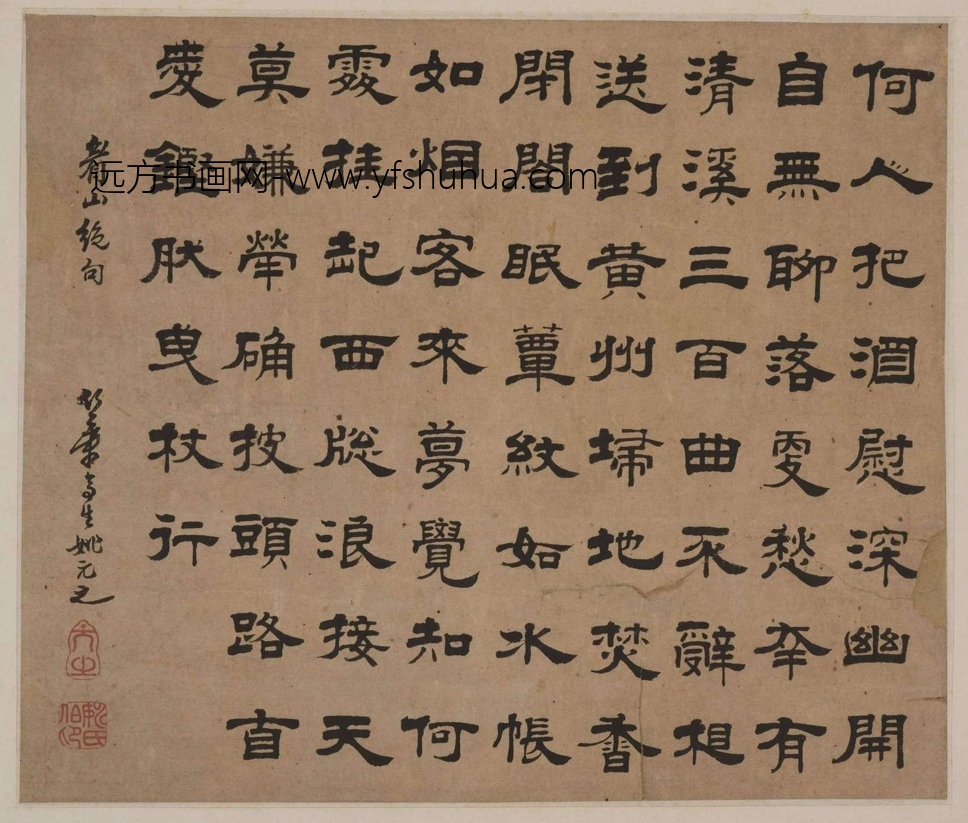 何人把酒慰深幽開
自無聊落更愁幸有
清溪三百曲不辭相
送到黃州埽地焚香
閉閤眠蕈紋如水帳
如烟客來夢覺知何
處挂起西牕浪接天
莫嫌犖确坡頭路自
愛鏗然曳杖行
山絕句
姚元之
远方书画网 www.yfshuhua.com